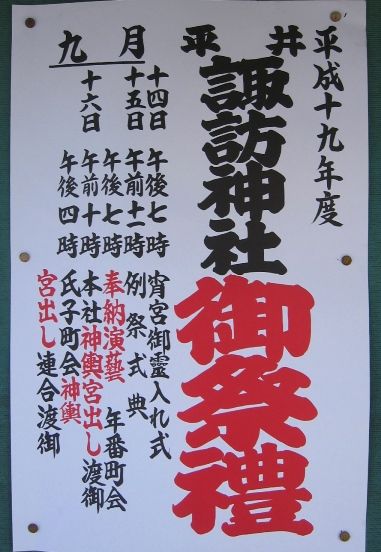 平成十九年度
平井
諏訪神社御祭禮
九月
十四日 午後七時 宵宮御霊入れ式
十五日 午前十一時 例祭式典
午後七時 奉納演藝 年番町会
十六日 午前十時 本社神輿宮出し渡御
午後四時 氏子町会神輿
宮出し連合渡御